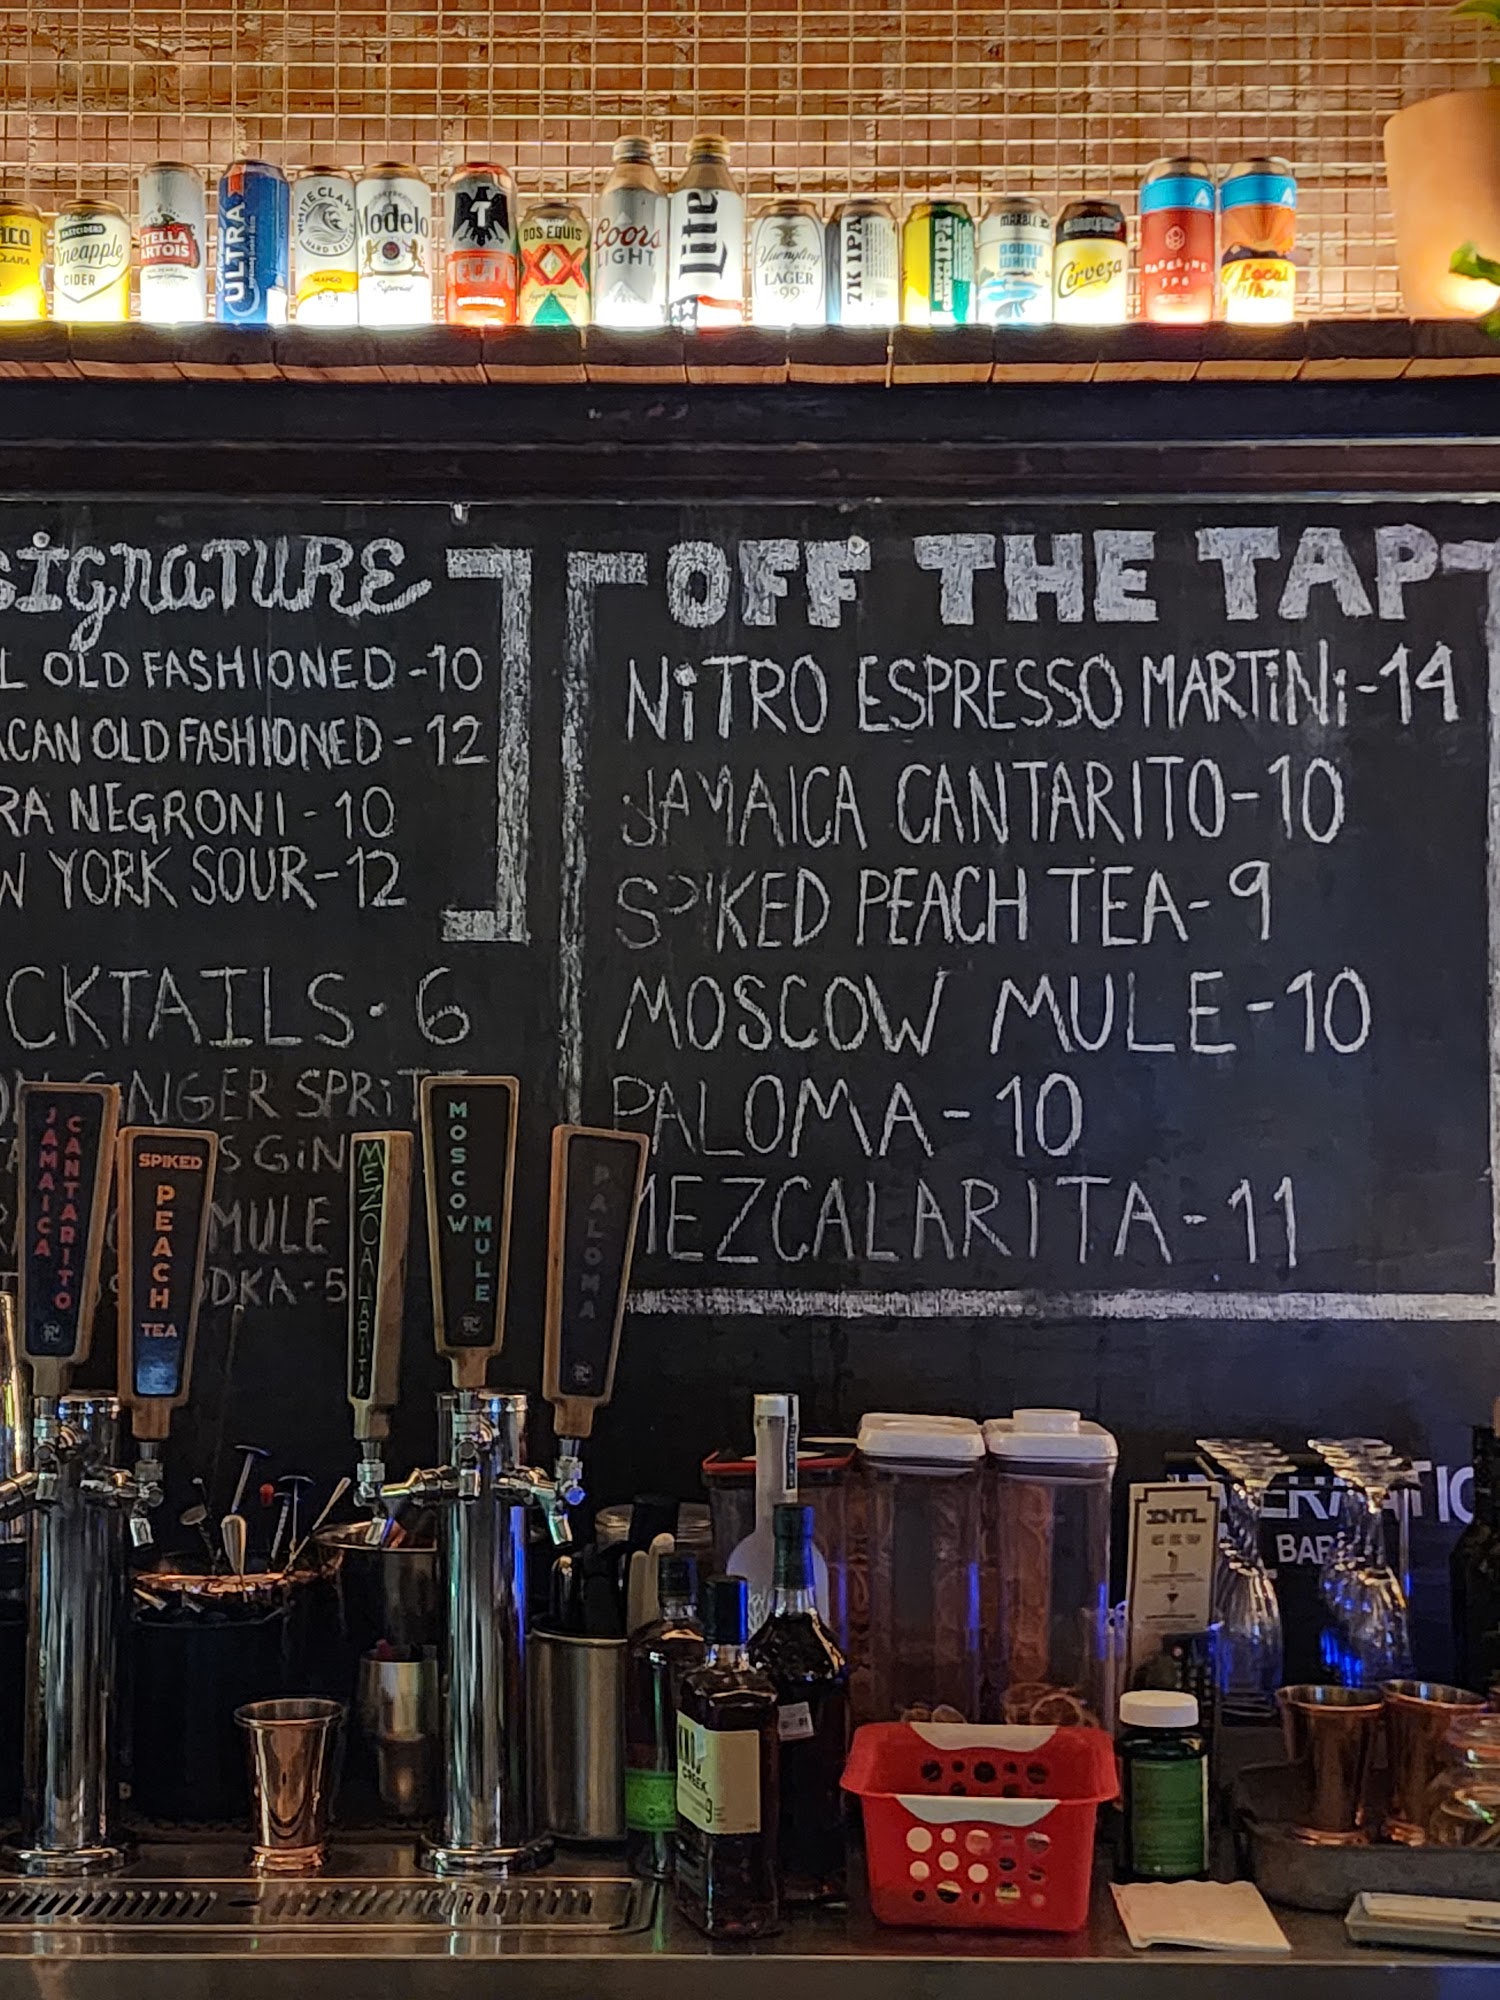 CLARA
Pineapple
CIDER
STELLA
ARTOIS
ULTRA
WHITE CLAW
HARD SELTZER
MANGO
Modelo
Especial
T
DOS EQUIS
XX
Coors
LIGHT
Lite
Yuengling
LAGER
99
7K IPA
IPA
MARBLE
DOUBLE
WHITE
Cerveza
BASELINE
IPA
Local
SIGNATURE
OLD FASHIONED - 10
OLD FASHIONED - 12
NEGRONI - 10
YORK SOUR - 12
CKTAILS · 6
GINGER SPRITZ
GIN
MULE
ODKA · 5
OFF THE TAP
NiTRO ESPRESSO MARTiNi - 14
JAMAICA CANTARITO - 10
SPIKED PEACH TEA - 9
MOSCOW MULE - 10
PALOMA - 10
MEZCALARITA - 11
JAMAICA
CANTARITO
SPIKED
PEACH
TEA
MEZCALARITA
MOSCOW
MULE
PALOMA
INTL
BAR
KNOB
CREEK
9